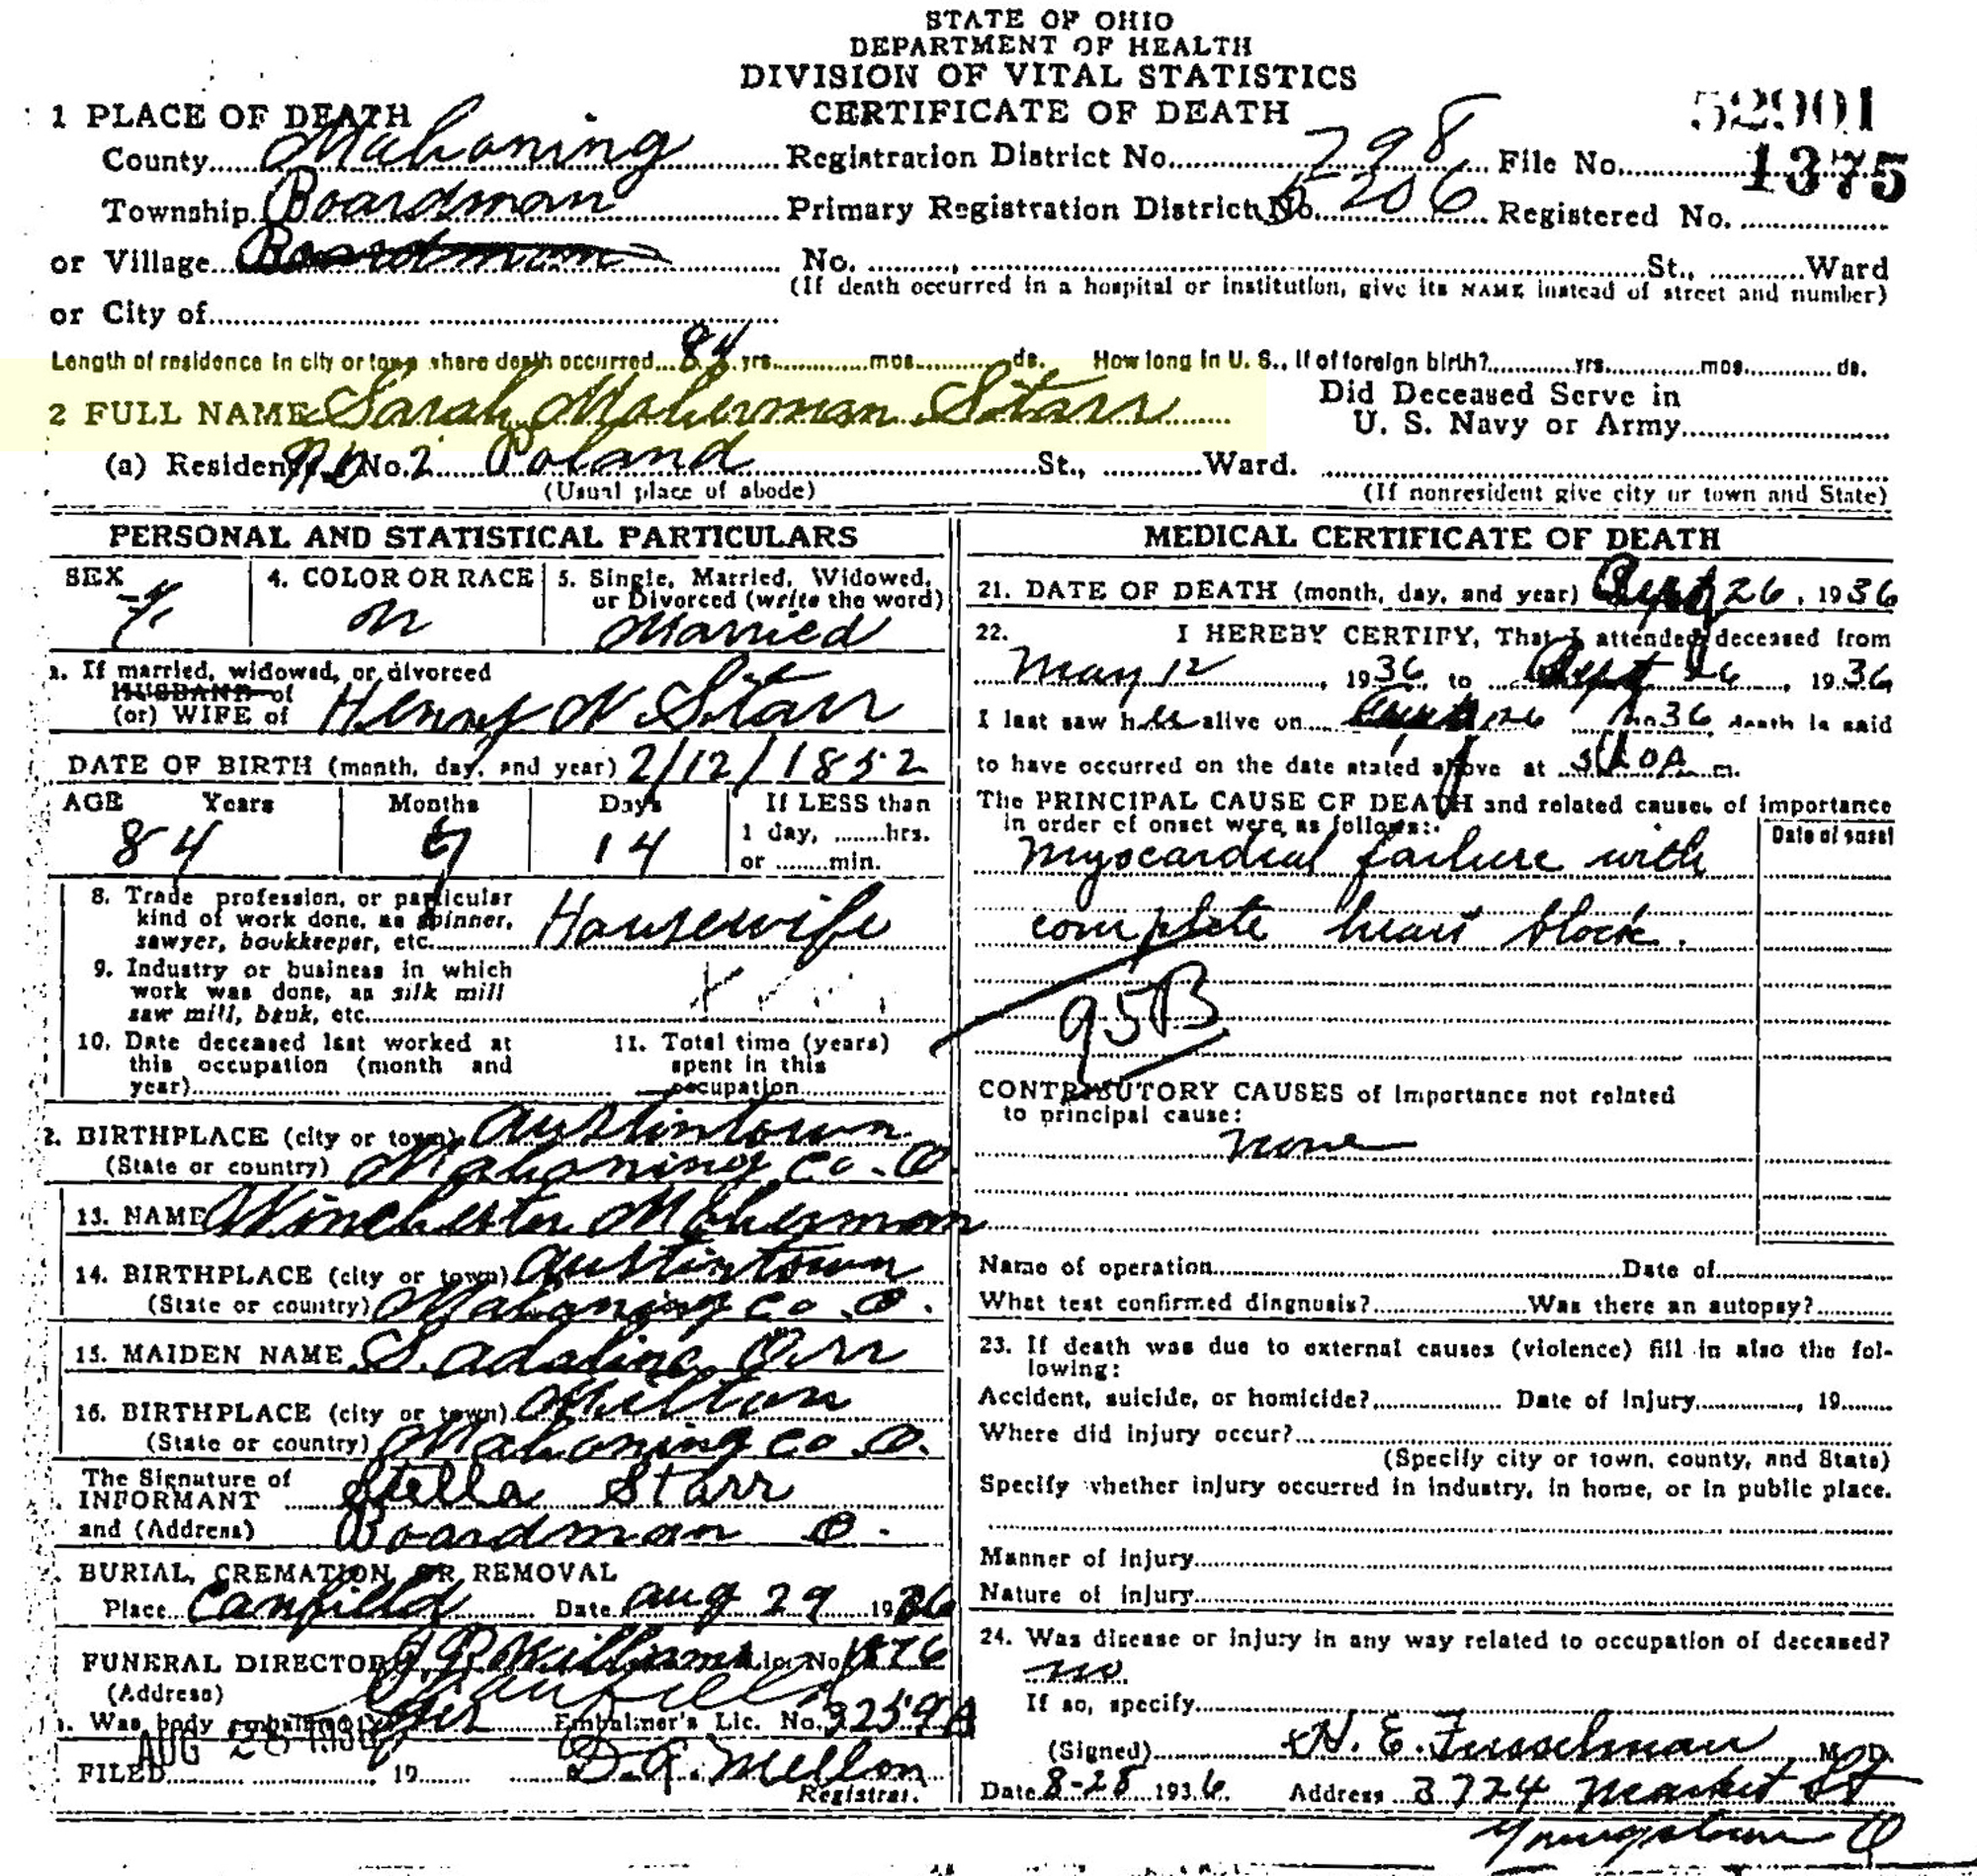 STATE OF OHIO
DEPARTMENT OF HEALTH
DIVISION OF VITAL STATISTICS
CERTIFICATE OF DEATH
52901
1375
1 PLACE OF DEATH
County Mahoning Registration District No. 798 File No.
Township Boardman Primary Registration District No. 5206 Registered No.
or Village Boardman No. St., Ward
(If death occurred in a hospital or institution, give its NAME instead of street and number)
or City of
Length of residence in city or town where death occurred 84 yrs. mos. ds. How long in U. S., if of foreign birth? yrs. mos. ds.
2 FULL NAME Sarah Moherman Starr Did Deceased Serve in
U. S. Navy or Army
(a) Residence No. 2 Poland St., Ward.
(Usual place of abode) (If nonresident give city or town and State)
PERSONAL AND STATISTICAL PARTICULARS
SEX 4. COLOR OR RACE 5. Single, Married, Widowed,
or Divorced (write the word)
F. Married
a. If married, widowed, or divorced
HUSBAND of
(or) WIFE of Henry N Starr
DATE OF BIRTH (month, day, and year) 2/12/1852
AGE Years Months Days If LESS than
84 14 1 day, hrs.
or min.
8. Trade profession, or particular
kind of work done, as spinner,
sawyer, bookkeeper, etc. Housewife
9. Industry or business in which
work was done, as silk mill
saw mill, bank, etc.
10. Date deceased last worked at
this occupation (month and
year)
11. Total time (years)
spent in this
occupation
2. BIRTHPLACE (city or town) Austintown
(State or country) Mahoning Co. O.
13. NAME Winchester Moherman
14. BIRTHPLACE (city or town) Austintown
(State or country) Mahoning Co. O.
15. MAIDEN NAME S. Adaline Orr
16. BIRTHPLACE (city or town) Milton
(State or country) Mahoning Co O.
The Signature of
INFORMANT Stella Starr
and (Address) Boardman O.
BURIAL, CREMATION, OR REMOVAL
Place Canfield Date Aug 29 1936
FUNERAL DIRECTOR Williams Lic. No.
(Address) Canfield
Was body embalmed Yes Embalmer's Lic. No. 3259A
AUG 28 1936
FILED 19 D. G. Mellon
Registrar.
MEDICAL CERTIFICATE OF DEATH
21. DATE OF DEATH (month, day, and year) 26, 1936
22. I HEREBY CERTIFY, That I attended deceased from
May 12, 1936, to 26, 1936
I last saw her alive on 26 1936 death is said
to have occurred on the date stated above at m.
The PRINCIPAL CAUSE OF DEATH and related causes of importance
in order of onset were as follows: Date of onset
Myocardial failure with
complete heart block.
95B
CONTRIBUTORY CAUSES of importance not related
to principal cause:
None
Name of operation Date of
What test confirmed diagnosis? Was there an autopsy?
23. If death was due to external causes (violence) fill in also the fol-
lowing:
Accident, suicide, or homicide? Date of injury, 19
Where did injury occur?
(Specify city or town, county, and State)
Specify whether injury occurred in industry, in home, or in public place.
Manner of injury
Nature of injury
24. Was disease or injury in any way related to occupation of deceased?
no.
If so, specify
(Signed) H. E. Fusselman M. D.
Date 8-28 1936. Address 3724 Market St
Youngstown O